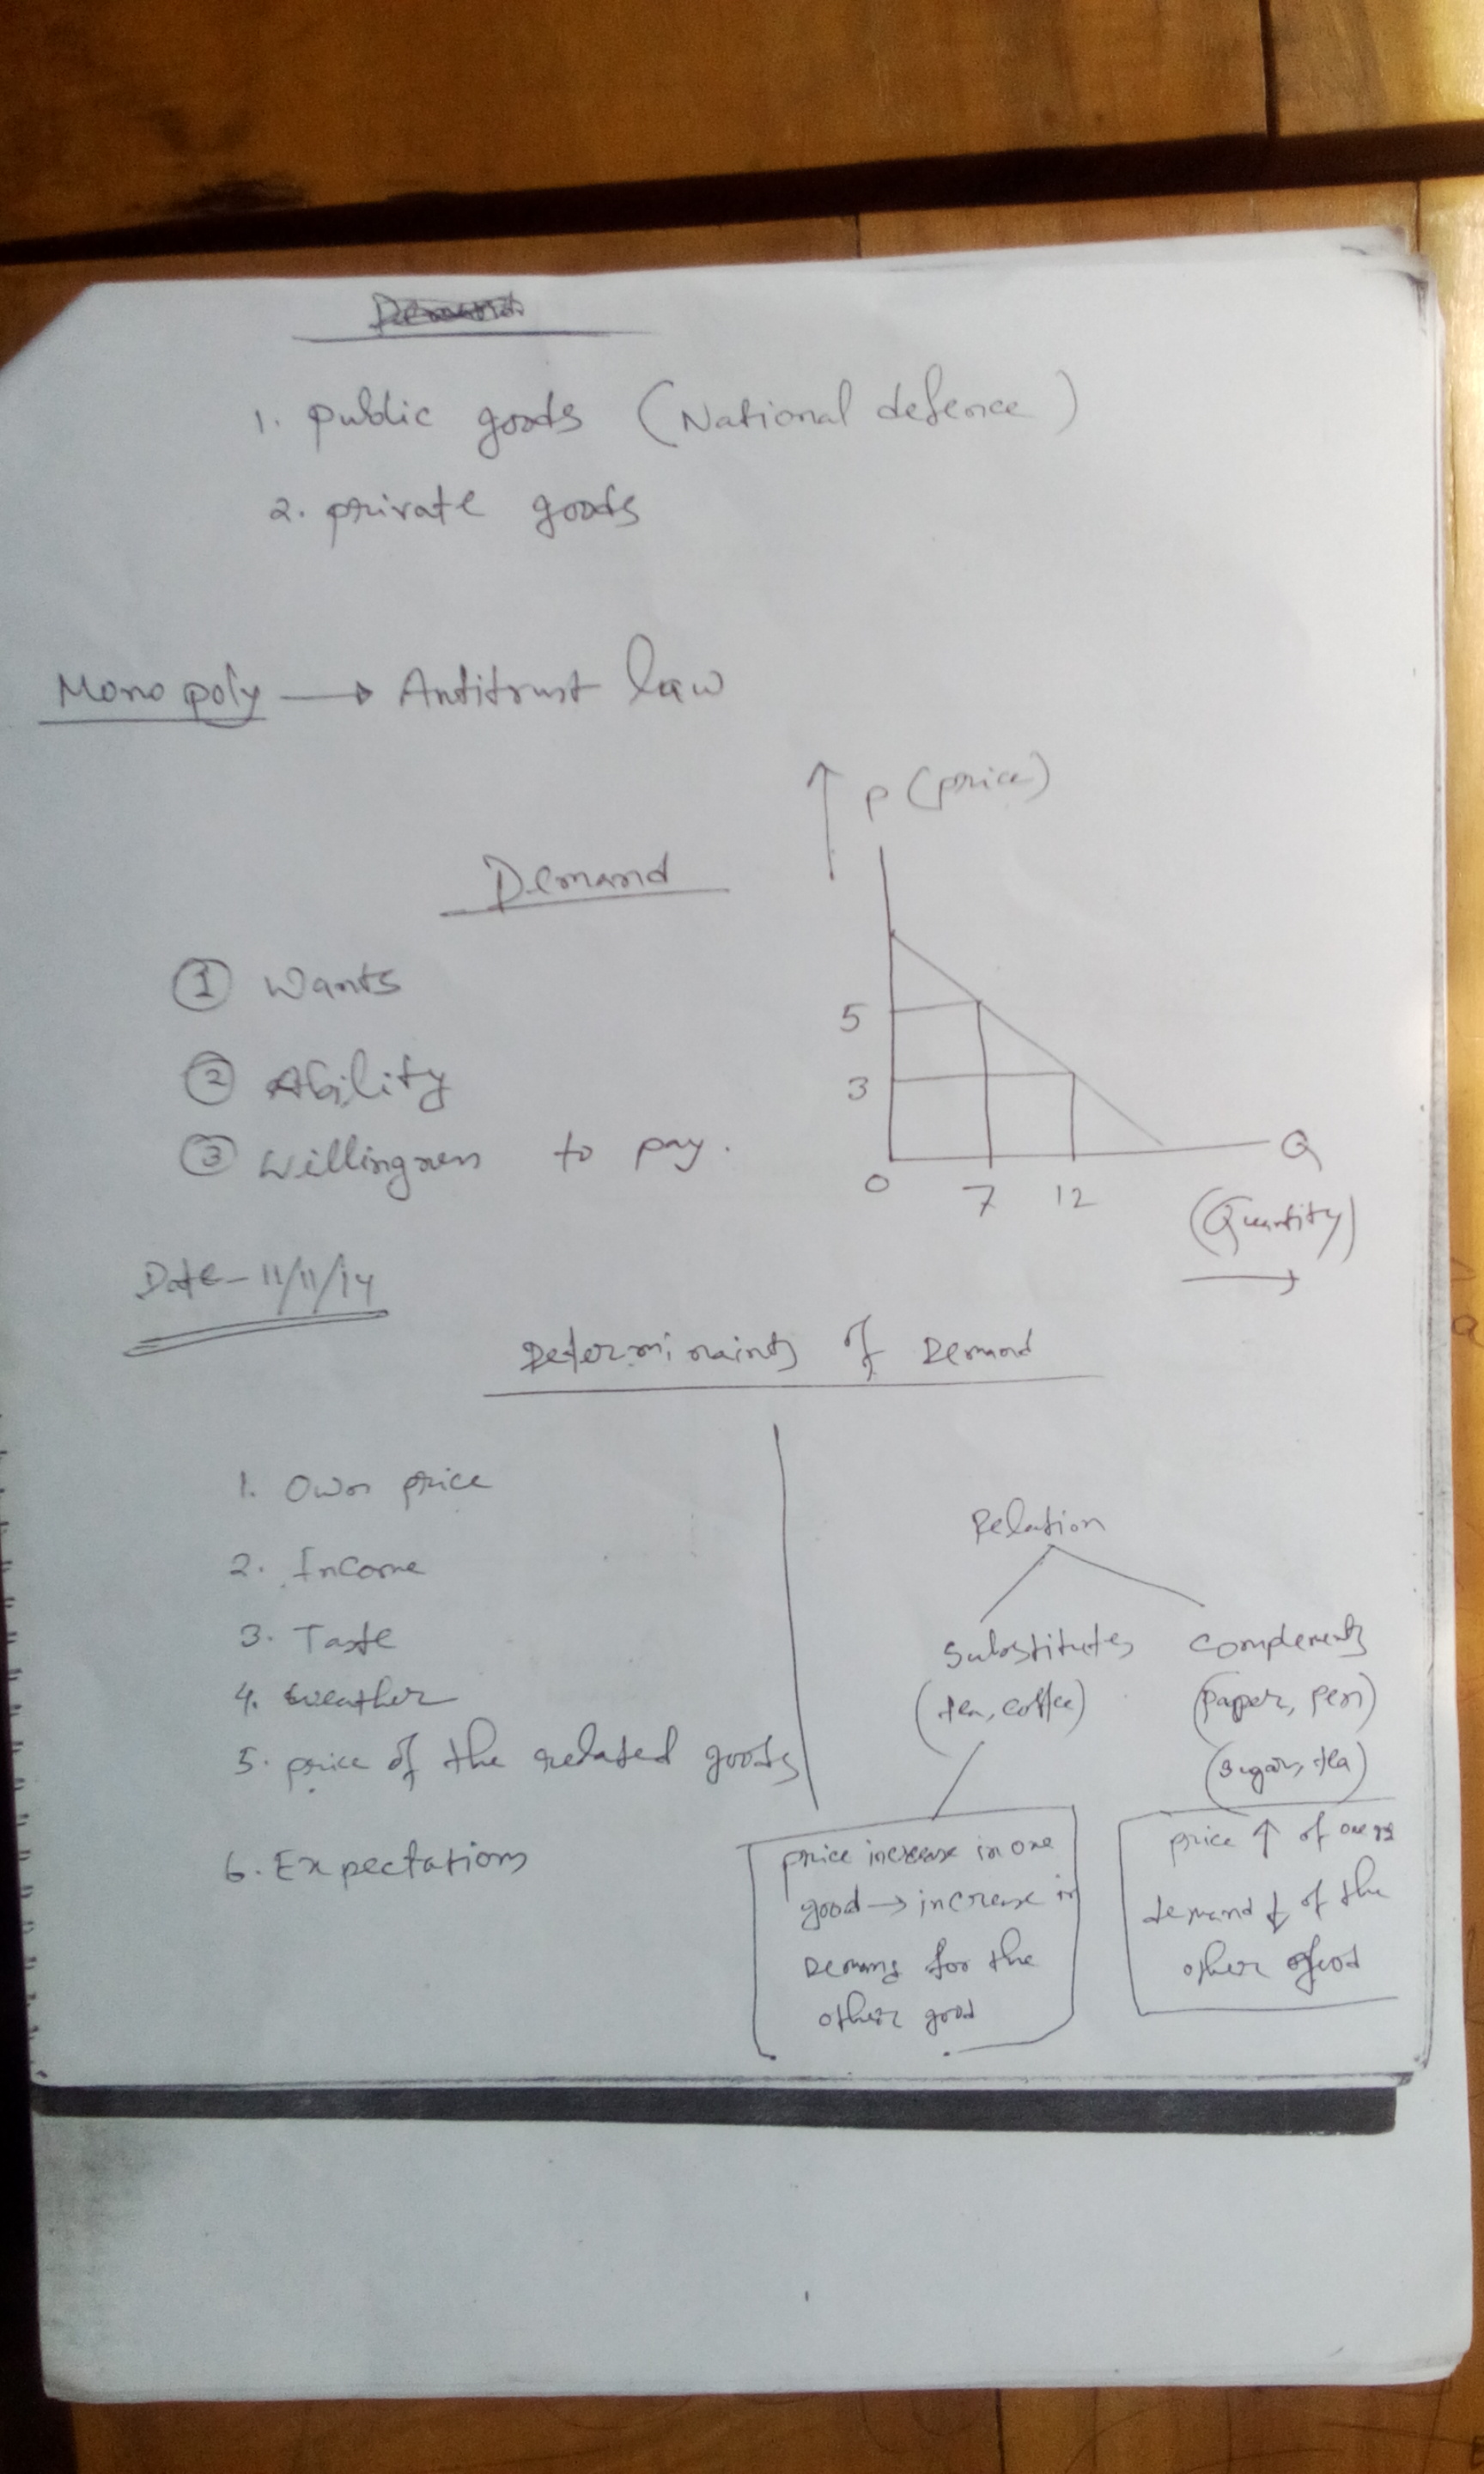 1. public goods (National defence)
2. private goods
Monopoly → Antitrust law
Demand
① Wants
② Ability
③ Willingness to pay.
↑ P (price)
5
3
0
7
12
Q
(Quantity)
→
Date - 11/11/14
Determinaints of Demand
1. Own price
2. Income
3. Taste
4. Weather
5. price of the related goods
6. Expectations
Relation
Substitutes
(tea, coffee)
price increase in one
good → increase in
Demand for the
other good
Complements
(paper, pen)
(sugar, tea)
price ↑ of one
demand ↓ of the
other good